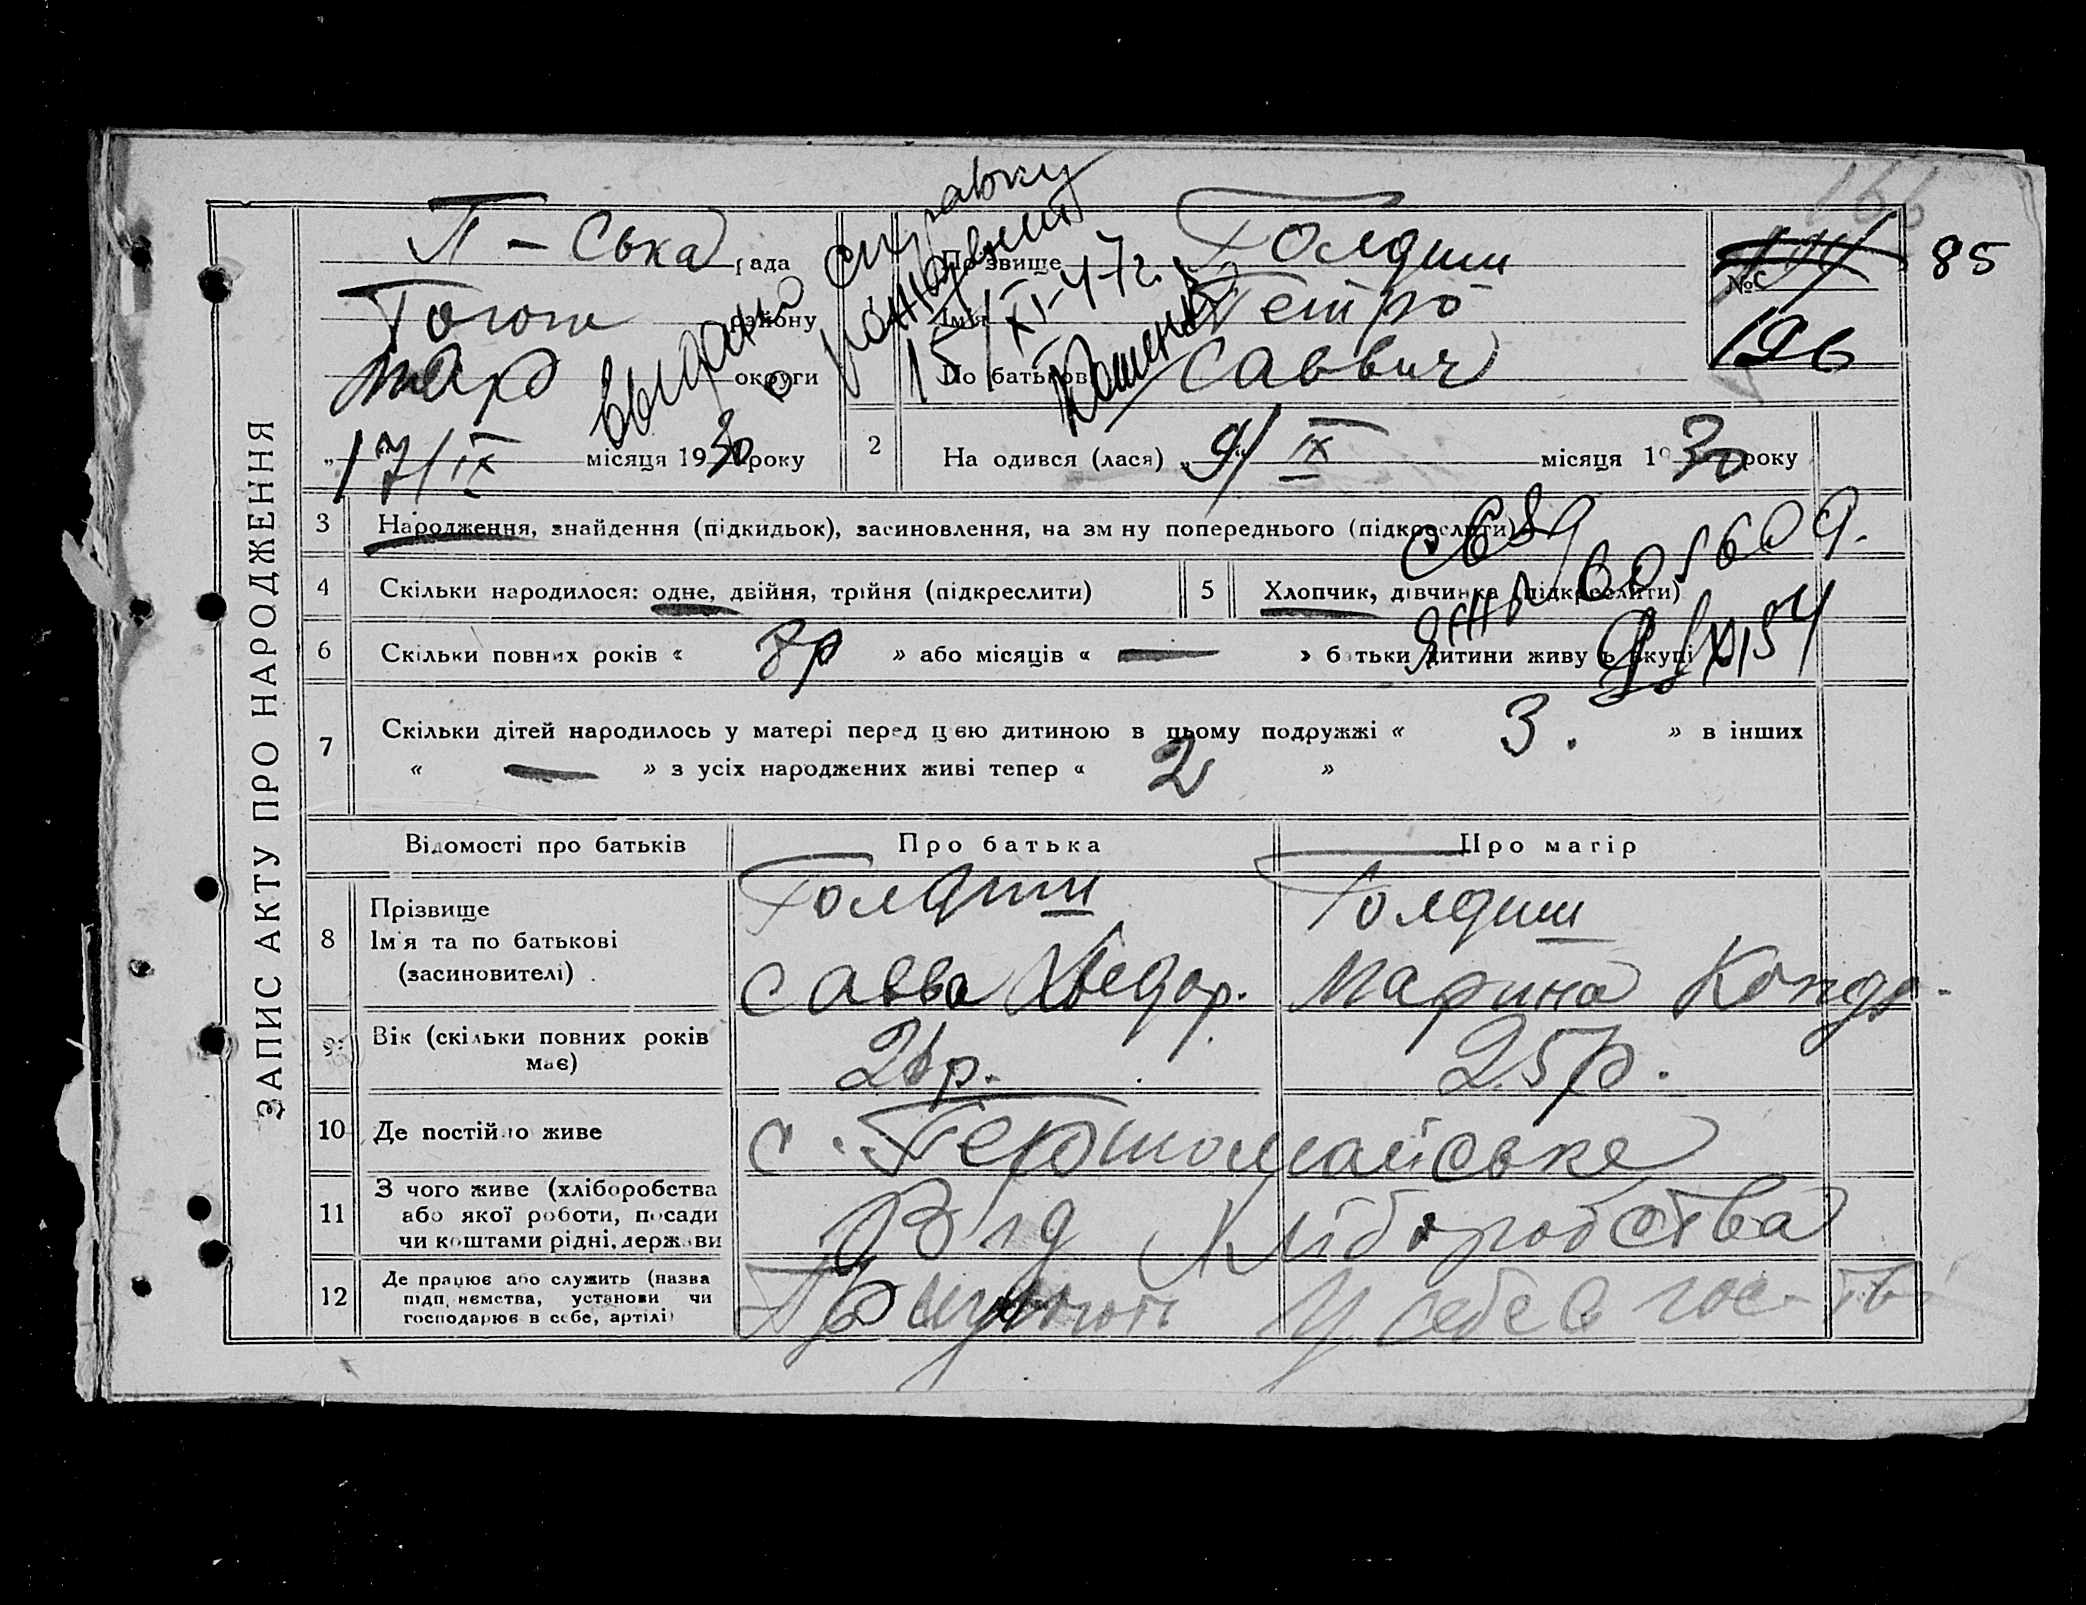 166
85
ЗАПИС АКТУ ПРО НАРОДЖЕННЯ
П-ська рада
району
округи
„17/IX місяця 1930 року
Видано справку
о рождении
15/XI-47г.
Прізвище Голдиш
Ім'я Петро
По батькові Саввич
№
196
2 Народився (лася) „9/IX місяця 1930 року
3 Народження, знайдення (підкидьок), засиновлення, на зміну попереднього (підкреслити)
4 Скільки народилося: одне, двійня, трійня (підкреслити) 5 Хлопчик, дівчинка (підкреслити)
6 Скільки повних років « 8р » або місяців « — » батьки дитини живуть вкупі
7 Скільки дітей народилось у матері перед цією дитиною в цьому подружжі « 3. » в інших
« — » з усіх народжених живі тепер « 2 »
Відомості про батьків Про батька Про матір
8 Прізвище Голдиш Голдиш
Ім'я та по батькові
(засиновителі) Савва Хведор. Марина Кондр.
9 Вік (скільки повних років має) 26р. 25р.
10 Де постійно живе с. Першомайське
11 З чого живе (хліборобства
або якої роботи, посади
чи коштами рідні, держави Від хліборобства
12 Де працює або служить (назва
підприємства, установи чи
господарює в себе, артілі) Працюють у себе в гос-тві